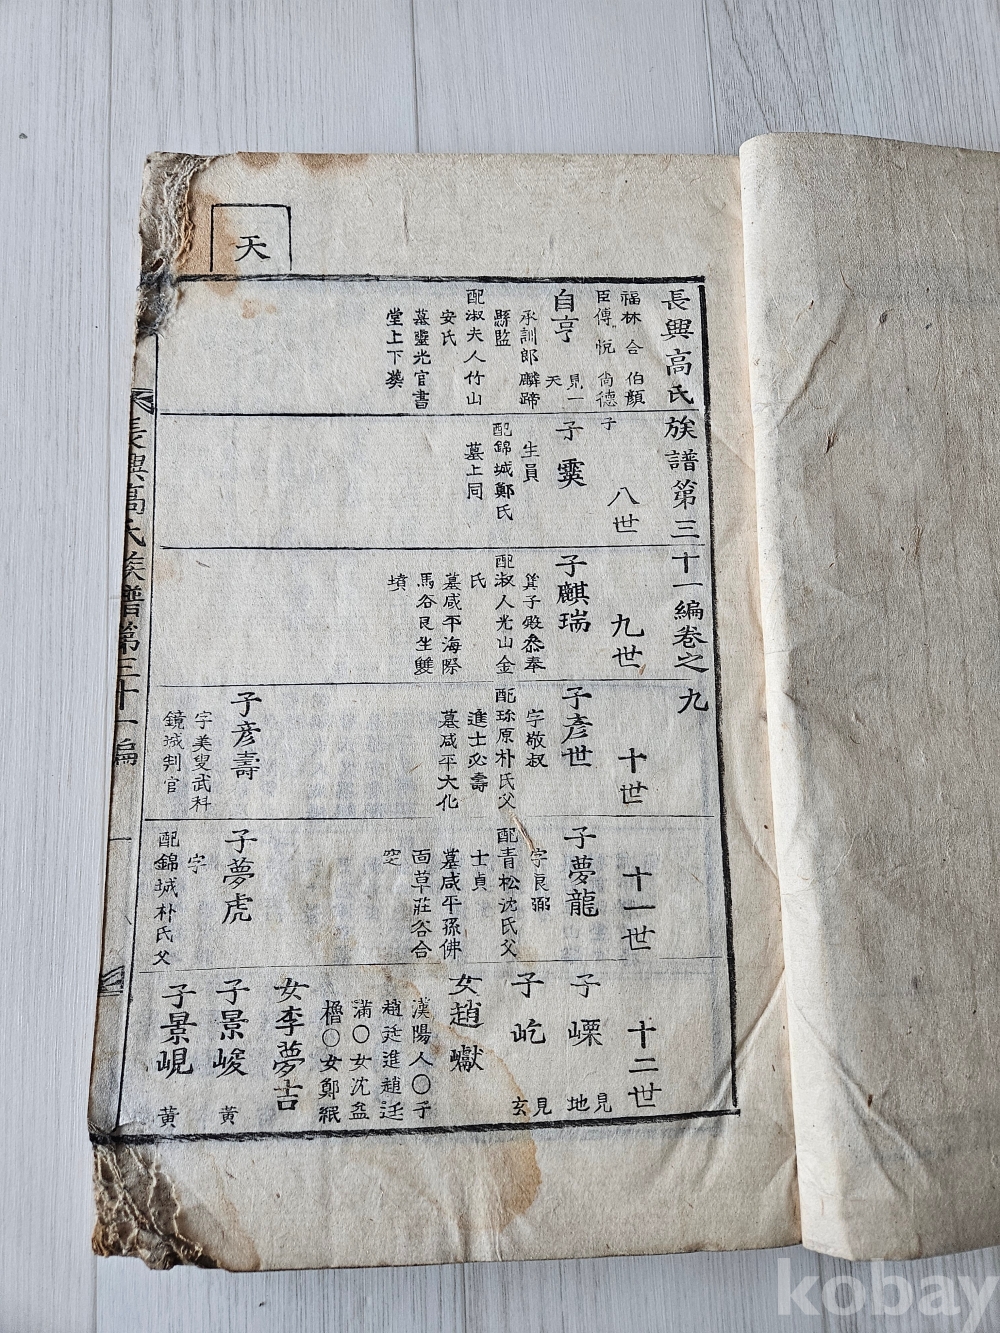 天
長興高氏族譜第三十一編卷之九
福林合 伯顏
臣傳悅 尙德
子
自亨 見一
天
承訓郎麟蹄
縣監
配淑夫人竹山
安氏
墓靈光官書
堂上下葬
八世
子霙
生員
配錦城鄭氏
墓上同
九世
子麒瑞
箕子殿叅奉
配淑人光山金
氏
墓咸平海際
馬谷艮坐雙
墳
十世
子彥世
字敬叔
配珎原朴氏父
進士必壽
墓咸平大化
子彥壽
字美叟武科
鏡城判官
十一世
子夢龍
字良弼
配青松沈氏父
士貞
墓咸平孫佛
面草莊谷合
窆
子夢虎
字
配錦城朴氏父
十二世
子嶫 見地
子屹 見玄
女趙巘
漢陽人〇子
趙廷進趙廷
滿〇女沈益
櫓〇女鄭紙
女李夢吉
子景峻 黃
子景峴 黃
長興高氏族譜第三十一編
一
kobay